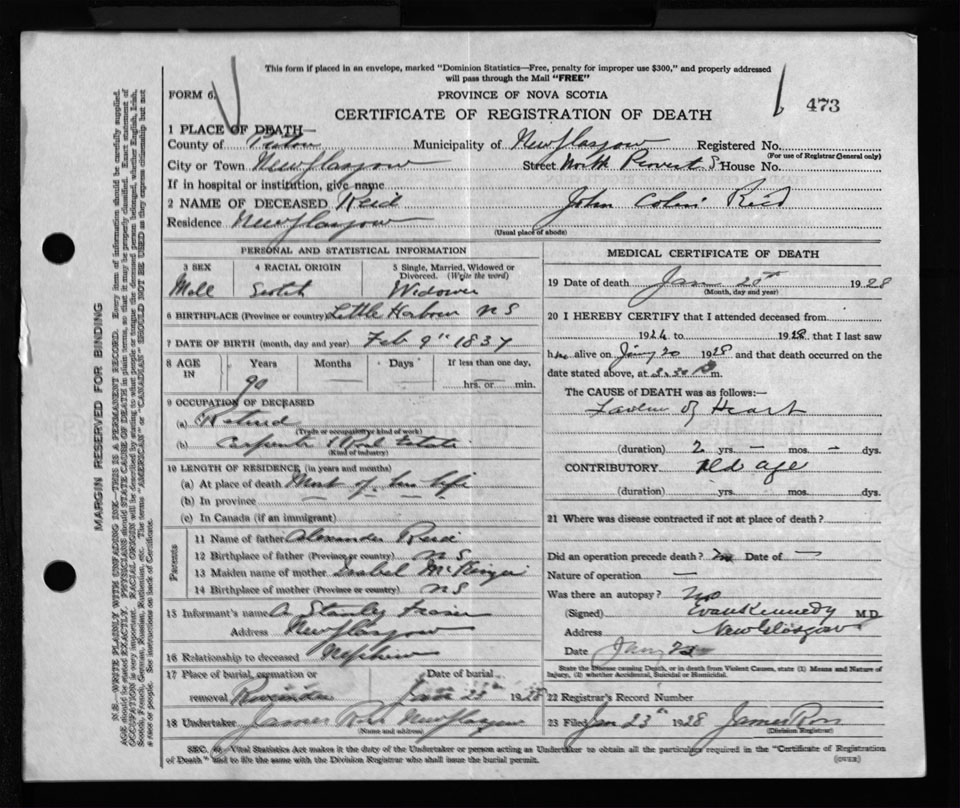 This form if placed in an envelope, marked "Dominion Statistics—Free, penalty for improper use $300," and properly addressed
will pass through the Mail "FREE"
FORM 6.
PROVINCE OF NOVA SCOTIA
473
CERTIFICATE OF REGISTRATION OF DEATH
1 PLACE OF DEATH—
County of Pictou Municipality of New Glasgow Registered No.
(For use of Registrar General only)
City or Town New Glasgow Street North Provost S House No.
If in hospital or institution, give name
2 NAME OF DECEASED Reid John Colin Reid
Residence New Glasgow
(Usual place of abode)
PERSONAL AND STATISTICAL INFORMATION
3 SEX 4 RACIAL ORIGIN 5 Single, Married, Widowed or Divorced. (Write the word)
Male Scotch Widower
6 BIRTHPLACE (Province or country) Little Harbour N S
7 DATE OF BIRTH (month, day and year) Feb 9th 1837
8 AGE IN Years Months Days If less than one day,
90 hrs. or min.
9 OCCUPATION OF DECEASED
(a) Retired
(Trade or occupation or kind of work)
(b) Carpenter & Real Estate
(Kind of industry)
10 LENGTH OF RESIDENCE (in years and months)
(a) At place of death Most of his life
(b) In province — — —
(c) In Canada (if an immigrant)
Parents
11 Name of father Alexander Reid
12 Birthplace of father (Province or country) N S
13 Maiden name of mother Isabel
14 Birthplace of mother (Province or country) N S
15 Informant's name A Stanley Fraser
Address New Glasgow
16 Relationship to deceased Nephew
17 Place of burial, cremation or removal Riverside
Date of burial Jan 23rd 1928
18 Undertaker James Ross New Glasgow
(Name and address)
MEDICAL CERTIFICATE OF DEATH
19 Date of death Jan 20th 1928
(Month, day and year)
20 I HEREBY CERTIFY that I attended deceased from
1924 to 1928 that I last saw
him alive on Jany 20 1928 and that death occurred on
date stated above, at m.
The CAUSE of DEATH was as follows:
Failure of Heart
(duration) 2 yrs. — mos. — dys.
CONTRIBUTORY old age
(duration) yrs. mos. dys.
21 Where was disease contracted if not at place of death?
Did an operation precede death? no Date of —
Nature of operation —
Was there an autopsy? no
(Signed) Evan Kennedy M.D.
Address New Glasgow
Date Jany
State the Disease causing Death, or in death from Violent Causes, state (1) Means and Nature of
Injury, (2) whether Accidental, Suicidal or Homicidal.
22 Registrar's Record Number
23 Filed Jan 23th 1928 James Ross
(Division Registrar)
SEC. Vital Statistics Act makes it the duty of the Undertaker or person acting as Undertaker to obtain all the particulars required in the "Certificate of Registration
of Death" and to file the same with the Division Registrar who shall issue the burial permit.
(OVER)
MARGIN RESERVED FOR BINDING
N.B.—WRITE PLAINLY WITH UNFADING INK—THIS IS A PERMANENT RECORD. Every item of information should be carefully supplied.
AGE should be stated EXACTLY. PHYSICIANS should STATE CAUSE OF DEATH in plain terms, so that it may be properly classified. Exact statement of
OCCUPATION is very important. RACIAL ORIGIN will be described by stating to what people or tongue the deceased person belonged, whether English, Irish,
Scotch, French, German, Russian, Ruthenian, etc. The terms "AMERICAN" or "CANADIAN" SHOULD NOT BE USED as they express citizenship but not
a race or people. See instructions on back of Certificate.